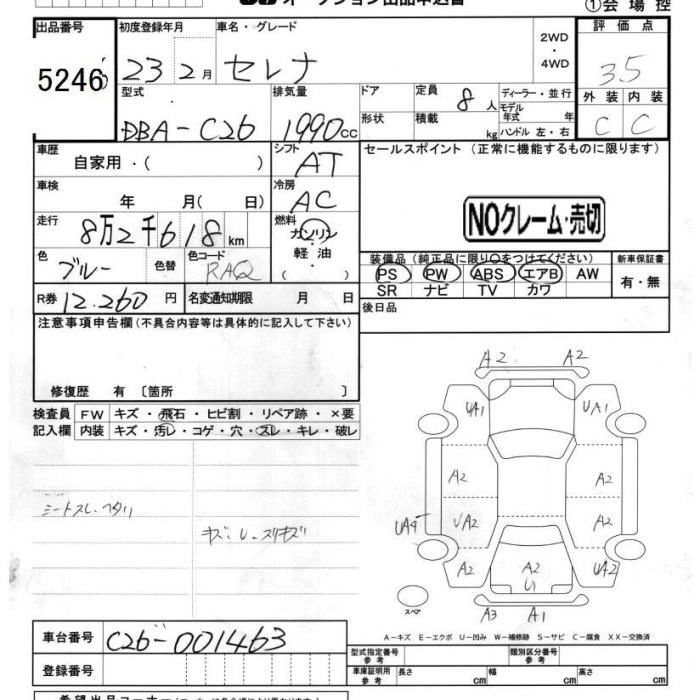 オークション出品申込書
①会場控
出品番号 初度登録年月 車名・グレード 2WD・4WD 評価点
5246 23 2月 セレナ 3.5
型式 排気量 ドア 定員 8人 ディーラー・並行
外装 内装
DBA-C26 1990cc 形状 積載 kg モデル年式 年
ハンドル 左・右
C C
車歴 自家用・( ) シフト AT セールスポイント (正常に機能するものに限ります)
車検 年 月( 日) 冷房 AC
NOクレーム・売切
走行 8万2千618km 燃料 ガソリン 軽油・( )
色 ブルー 色替 色コード RAQ
装備品 (純正品に限り○をつけてください) 新車保証書
PS PW ABS エアB AW 有・無
SR ナビ TV カワ
R券 12.260円 名変通知期限 月 日 後日品
注意事項申告欄 (不具合内容等は具体的に記入して下さい)
修復歴 有 〔箇所 〕
検査員 FW キズ・飛石・ヒビ割・リペア跡・×要
記入欄 内装 キズ・汚レ・コゲ・穴・スレ・キレ・破レ
シートスレ・ヘタリ
キズ・U・スリキズ
A2 A2
UA1 UA1
A2 A2
UA4 UA2 A2
A2 A2 UA2
U1
スペア A3 A1
A-キズ E-エクボ U-凹み W-補修跡 S-サビ C-腐食 XX-交換済
車台番号 C26-001463
型式指定番号 参考 類別区分番号 参考
登録番号 車庫証明用 参考 長さ cm 幅 cm 高さ cm